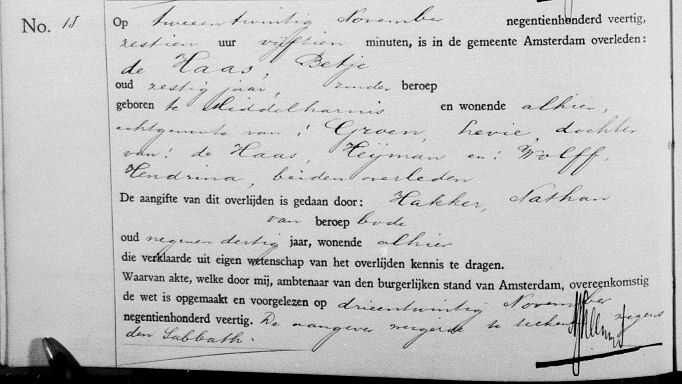 No. 15
Op tweeentwintig November negentienhonderd veertig,
zestien uur vijftien minuten, is in de gemeente Amsterdam overleden:
de Haas, Betje
oud zestig jaar, zonder beroep
geboren te Middelharnis en wonende alhier,
echtgenoote van: Groen, Levie, dochter
van: de Haas, Heijman en: Wolff,
Hendrina, beiden overleden
De aangifte van dit overlijden is gedaan door: Hakker, Nathan
van beroep bode
oud negenendertig jaar, wonende alhier
die verklaarde uit eigen wetenschap van het overlijden kennis te dragen.
Waarvan akte, welke door mij, ambtenaar van den burgerlijken stand van Amsterdam, overeenkomstig
de wet is opgemaakt en voorgelezen op drieentwintig November
negentienhonderd veertig. De aangever weigerde te teekenen wegens
den Sabbath.